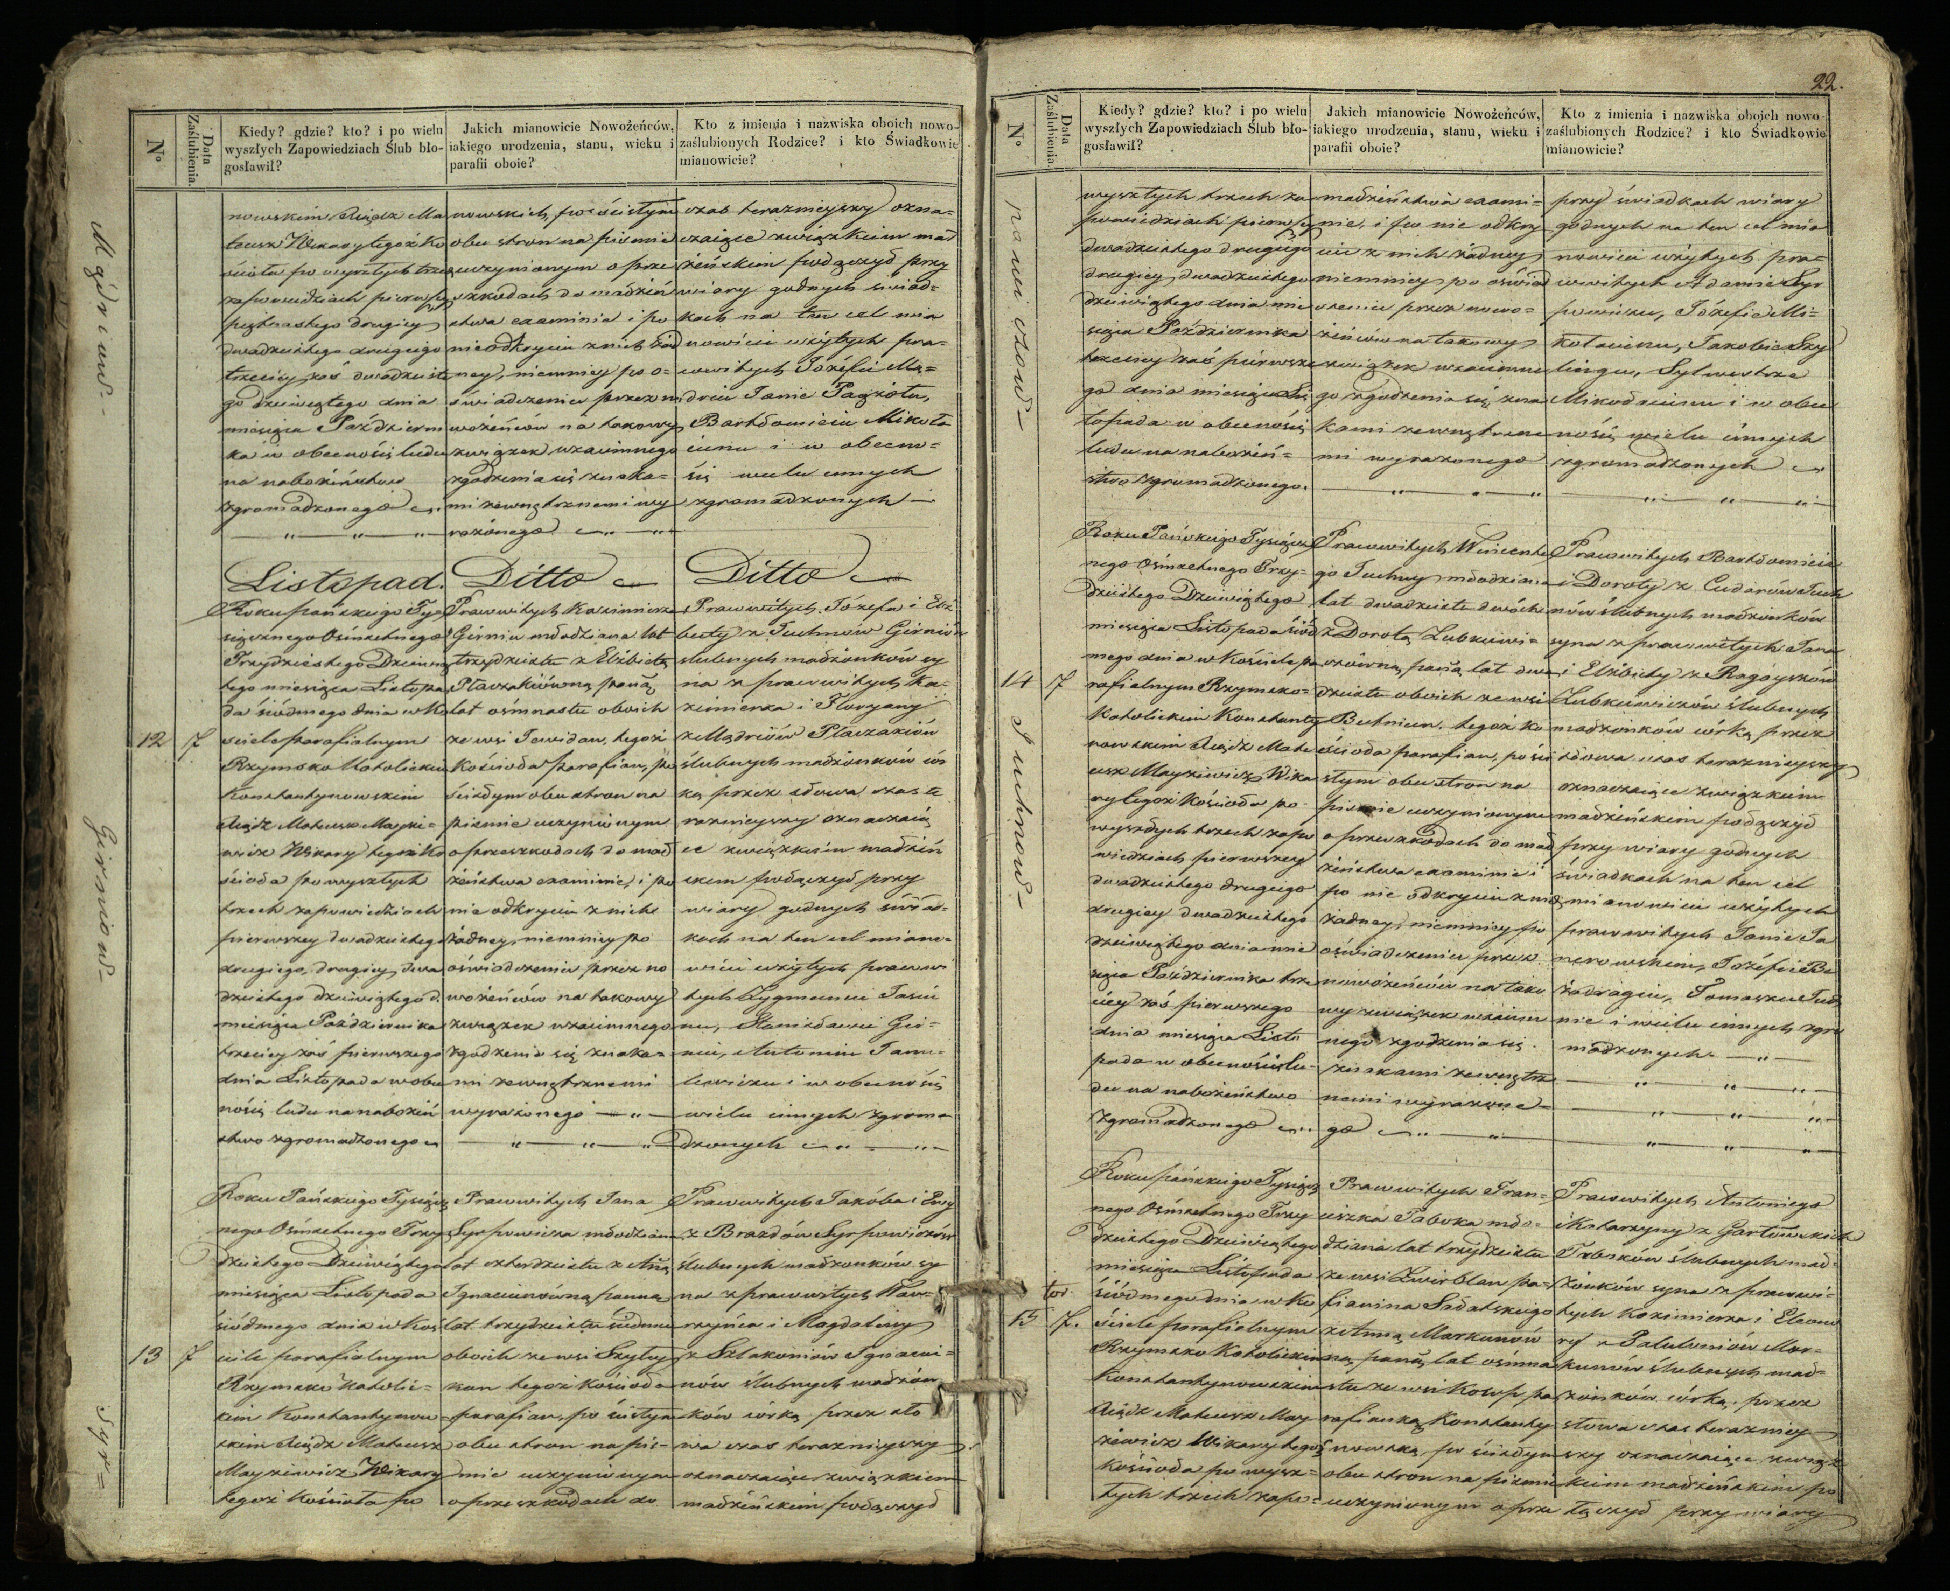 22.
№
Data Zaślubienia.
Kiedy? gdzie? kto? i po wielu
wyszłych Zapowiedziach Ślub bło-
gosławił?
Jakich mianowicie Nowożeńców,
iakiego urodzenia, stanu, wieku i
parafii oboie?
Kto z imienia i nazwiska oboich nowo-
zaślubionych Rodzice? i kto Świadkowie
mianowicie?
nowskim Xiądz Ma
teusz Wikary tegoż Ko
ścioła po wyszłych trzech
zapowiedziach pierwszey
piętnastego drugiey
dwudziestego drugiego
trzeciey zaś dwudziste
go dziewiątego dnia
miesiąca Październi
ka w obecności ludu
na nabożeństwo
zgromadzonego
nowskich, po ścisłym
obu stron na piśmie
uczynionym o prze
szkodach do małżeń
stwa examinie i po
nieodkryciu z nich żad
ney, niemniey po o-
świadczeniu przez no
wożeńców na takowy
związek wzaiemnego
zgodzenia się znaka-
mi zewnętrznemi wy
rażonego
czas terazneyszy ozna-
czaiące związkiem mał
żeńskim połączył przy
wiary godnych świad-
kach na ten cel mia
nowicie użytych pra-
cowitych Józefie Mą-
driu Janie Pażiotu,
Bartłomieiu Mikoła
iunu i w obecno-
ści wielu innych
zgromadzonych
Listopad.
Roku pańskiego Tys
siącznego Osimsetnego
Trzydziestego Dziewią
tego miesiąca Listopa
da siódmego dnia w Ko
sciele parafialnym
Rzymsko Katolickim
Konstantynowskim
Xiądz Mateusz Mayżie-
wicz Wikary tegoż Ko
ścioła po wyszłych
trzech zapowiedziach
pierwszey dwudziestego
drugiego, drugiey dwu
dziestego dziewiątego d.
miesiąca Października
trzeciey zaś pierwszego
dnia Listopada w obec
ności ludu na nabożeń
stwo zgromadzonego
Ditto
Pracowitych Kazimierza
Girnia młodziana lat
trzydziestu z Elżbietą
Płaczakówną panną
lat ośmnastu oboich
ze wsi Jewidan, tegoż
Kościoła Parafian, po
ścisłym obu stron na
piśmie uczynionym
o przeszkodach do mał
żeństwa examinie, i po
nie odkryciu z nich
żadney, niemniey po
oświadczeniu przez no
wożeńców na takowy
związek wzaiemnego
zgodzenia się znaka-
mi zewnętrznemi
wyrażonego
Ditto
Pracowitych Józefa i Elż
biety z Juchnów Girniów
slubnych małżonków sy
na z pracowitych Ka-
zimierza i Floryany
z Mądriów Płaczaków
ślubnych małżonków cór
ką przez słowa czas te
razneyszy oznaczaią
ce związkiem małżeń
skim połączył przy
wiary godnych świad-
kach na ten cel miano-
wicie użytych pracowi
tych Zygmuncie Jasiu
nu, Stanisławie Gir-
niu, Antonim Janu-
lewiczu i w obecności
wielu innych zgroma
dzonych
12
7
Roku Pańskiego Tysiącz
nego Ośmsetnego Trzy
dziestego Dziewiątego
miesiąca Listopada
siódmego dnia w Koś
ciele parafialnym
Rzymsko Katolic-
kim Konstantynow-
skim Xiądz Mateusz
Mayżiewicz Wikary
tegoż Kościoła po
Pracowitych Jana
Syrpowicza młodziana
lat czterdziestu z Anną
Ignaciunówną panną
lat trzydziestu siedmiu
oboich ze wsi Szytry
kan tegoż Kościoła
parafian, po ścisłym
obu stron na piś-
mie uczynionym
o przeszkodach do
Pracowitych Jakóba i Ewy
z Brazdów Syrpowiczów
ślubnych małżonków sy
na z pracowitych Waw-
rzyńca i Magdaleny
z Szlakoniów Ignaciu-
nów ślubnych małżon
ków córką przez sło
wa czas terazneyszy
oznaczaiące związkiem
małżeńskim połączył
13
7
Mądriund-
Girniowd
Syr=
№
Data Zaślubienia.
Kiedy? gdzie? kto? i po wielu
wyszłych Zapowiedziach Ślub bło-
gosławił?
Jakich mianowicie Nowożeńców,
iakiego urodzenia, stanu, wieku i
parafii oboie?
Kto z imienia i nazwiska oboich nowo-
zaślubionych Rodzice? i kto Świadkowie
mianowicie?
wyszłych trzech za
powiedziach pierwszey
dwudziestego drugiego
drugiey dwudziestego
dziewiątego dnia mie
siąca Października
trzeciey zaś pierwsze
go dnia miesiąca Lis
topada w obecności
ludu na nabożeń-
stwo zgromadzonego.
małżeństwa exami-
nie, i po nie odkry
ciu z nich żadney
niemniey po oświad
czeniu przez nowo-
żeńców na takowy
związek wzaiemne
go zgodzenia się zna
kami zewnętrzne
mi wyrażonego
przy świadkach wiary
godnych na ten cel mia
nowicie użytych pra-
cowitych Adamie Syr
powiczu, Józefie Mi-
kołaciunu, Jakóbie Szy
lingu, Sylwestrze
Mikołaiunu i w obec
ności wielu innych
zgromadzonych
powiczowd-
Roku Pańskiego Tysiącz
nego Ośmsetnego Trzy-
dziestego Dziewiątego
miesiąca Listopada siód
mego dnia w Kościele pa
rafialnym Rzymsko-
Katolickim Konstanty
nowskim Xiądz Mate
usz Mayżiewicz Wika
ry tegoż Kościoła po
wyszłych trzech zapo
wiedziach pierwszey
dwudziestego drugiego
drugiey dwudziestego
dziewiątego dnia mie
siąca Października trze
ciey zaś pierwszego
dnia miesiąca Listo
pada w obecności lu-
du na nabożeństwo
zgromadzonego
Pracowitych Wincente
go Juchny młodziana
lat dwudziestu dwóch
z Dorotą Lubkiewi-
czówną panną lat dwu
dziestu oboich ze wsi
Butniun tegoż Ko
ścioła parafian, po ści
słym obu stron na
piśmie uczynionym
o przeszkodach do mał
żeństwa examinie i
po nie odkryciu z nich
żadney, niemniey po
oświadczeniu przez
nowożeńców na tako
wy związek wzaiem
nego zgodzenia się
znakami zewnętrz
nemi wyrażone-
go
Pracowitych Bartłomieia
i Doroty z Cudarów Juch
nów ślubnych małżonków
syna z pracowitych Jana
i Elżbiety z Rogoyszów
Lubkiewiczów ślubnych
małżonków córką przez
słowa czas terazneyszy
oznaczaiące związkiem
małżeńskim połączył
przy wiary godnych
świadkach na ten cel
mianowicie użytych
pracowitych Janie Ja
nczewskim, Józefie Be
żdragiu, Tomaszu Jud
nie i wielu innych zgro
madzonych
14
7
Juchnowd-
Roku pańskiego Tysiącz
nego Ośmsetnego Trzy
dziestego Dziewiątego
miesiąca Listopada
siódmego dnia w Ko
ściele parafialnym
Rzymsko Katolickim
Konstantynowskim
Xiądz Mateusz May
żiewicz Wikary tegoż
Kościoła po wysz-
łych trzech zapo-
Pracowitych Fran-
ciszka Taboka mło-
dziana lat trzydziestu
ze wsi Zwirblan pa-
fianina Szłatskiego
z Anną Markunów
ną panną lat ośmna
stu ze wsi Kosup pa
rafianką Konstanty
nowską, po ścisłym
obu stron na piśmie
uczynionym o prze
Pracowitych Antoniego
i Katarzyny z Gartowskich
Toboków ślubnych mał-
żonków syna z pracowi-
tych Kazimierza i Eleono
ry z Paluloniów Mar-
kunów ślubnych mał-
żonków córką, przez
słowa czas terazniey
szy oznaczaiące związ
kiem małżeńskim po
łączył przy wiary
15
7.